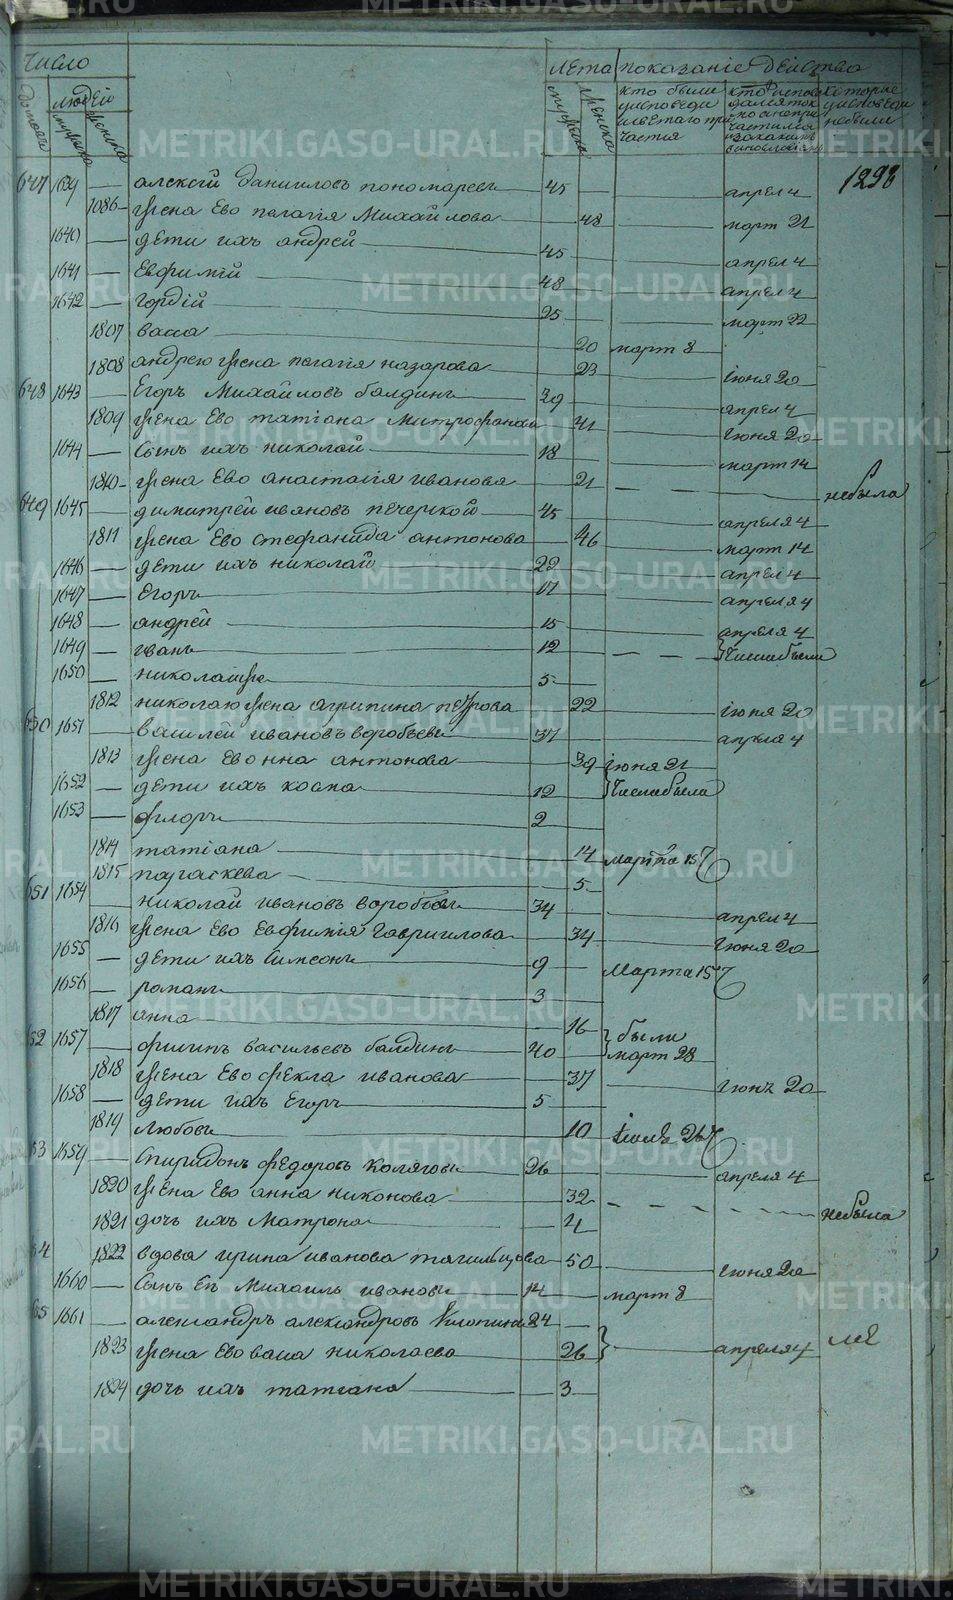 Число лета показание действа
домовъ людей
мужска женска мужска женска
кто были у исповеди и святаго причастия
которые у исповеди небыли
1298
647 1639 — алексей Данииловъ пономаревъ 45 апрел 4
1086 жена Ево пелагия Михайлова 48 март 21
1640 — дети ихъ андрей 45 апрел 4
1641 — Евфимий 48 апрел 4
1642 — гордий 25 март 22
1807 васса 20 март 8
1808 андрею жена пелагия назарова 23 июня 20
648 1643 — Егоръ Михайловъ балдинъ 39 апрел 4
1809 жена Ево татиана митрофанова 41 июня 20
1644 — Сынъ ихъ николай 18 март 14
1810 жена Ево анастасия иванова 21 небыла
649 1645 — димитрей ивановъ печерской 45 апреля 4
1811 жена Ево стефанида антонова 46 март 14
1646 — дети ихъ николай 22 апрел 4
1647 — Егоръ 17 апреля 4
1648 — андрей 15 апреля 4
1649 — иванъ 12
1650 — николай же 5
1812 николаю жена агрипина петрова 22 июня 20
650 1651 — василей ивановъ воробьевъ 37 апреля 4
1813 жена Ево нна антонова 39 июня 21
1652 — дети ихъ косма 12
1653 — флоръ 2
1814 татиана 14 марта 15
1815 параскева 5
651 1654 — николай ивановъ воробьевъ 34 апрел 4
1816 жена Ево Евфимия Гавриилова 34 июня 20
1655 — дети ихъ Симеонъ 9 марта 15
1656 — романъ 3
1817 анна 16 были
652 1657 — филипъ васильевъ балдинъ 40 март 28
1818 жена Ево фекла иванова 37 июнъ 20
1658 — дети ихъ Егоръ 5
1819 любовь 10
53 1659 — Спиридонъ федоровъ Коляговъ 26 апреля 4
1820 жена Ево анна никонова 32 небыла
1821 дочь ихъ Матрона 4
54 1822 вдова ирина иванова тагильцова 50 июня 20
1660 — Сынъ Ея Михаилъ ивановъ 14 март 8
1661 — александръ александровъ 24
1823 жена Ево васса николаева 26 апреля 4
1824 дочь ихъ татиана 3
METRIKI.GASO-URAL.RU